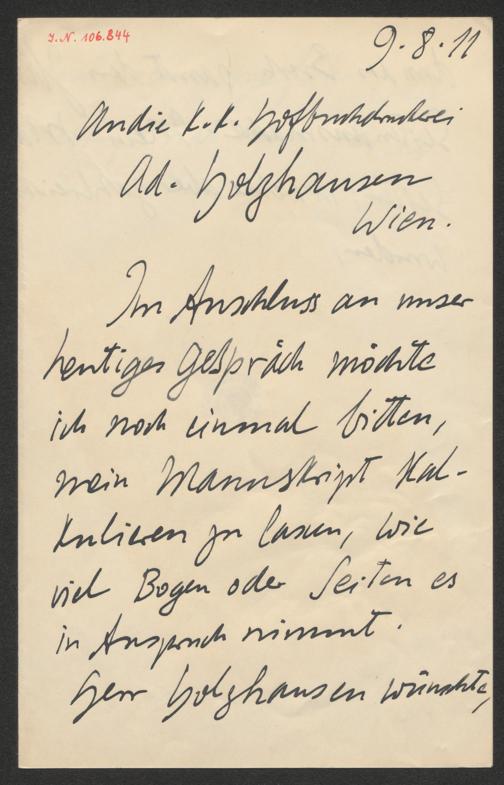 J.N. 106.844
9.8.11
An die K.K. Hofbuchdruckerei
Ad. Holzhausen
Wien.
Im Anschluss an unser
heutiges Gespräch möchte
ich noch einmal bitten,
mein Manuskript kal-
kulieren zu lassen, wie
viel Bogen oder Seiten es
in Anspruch nimmt.
Herr Holzhausen wünschte,